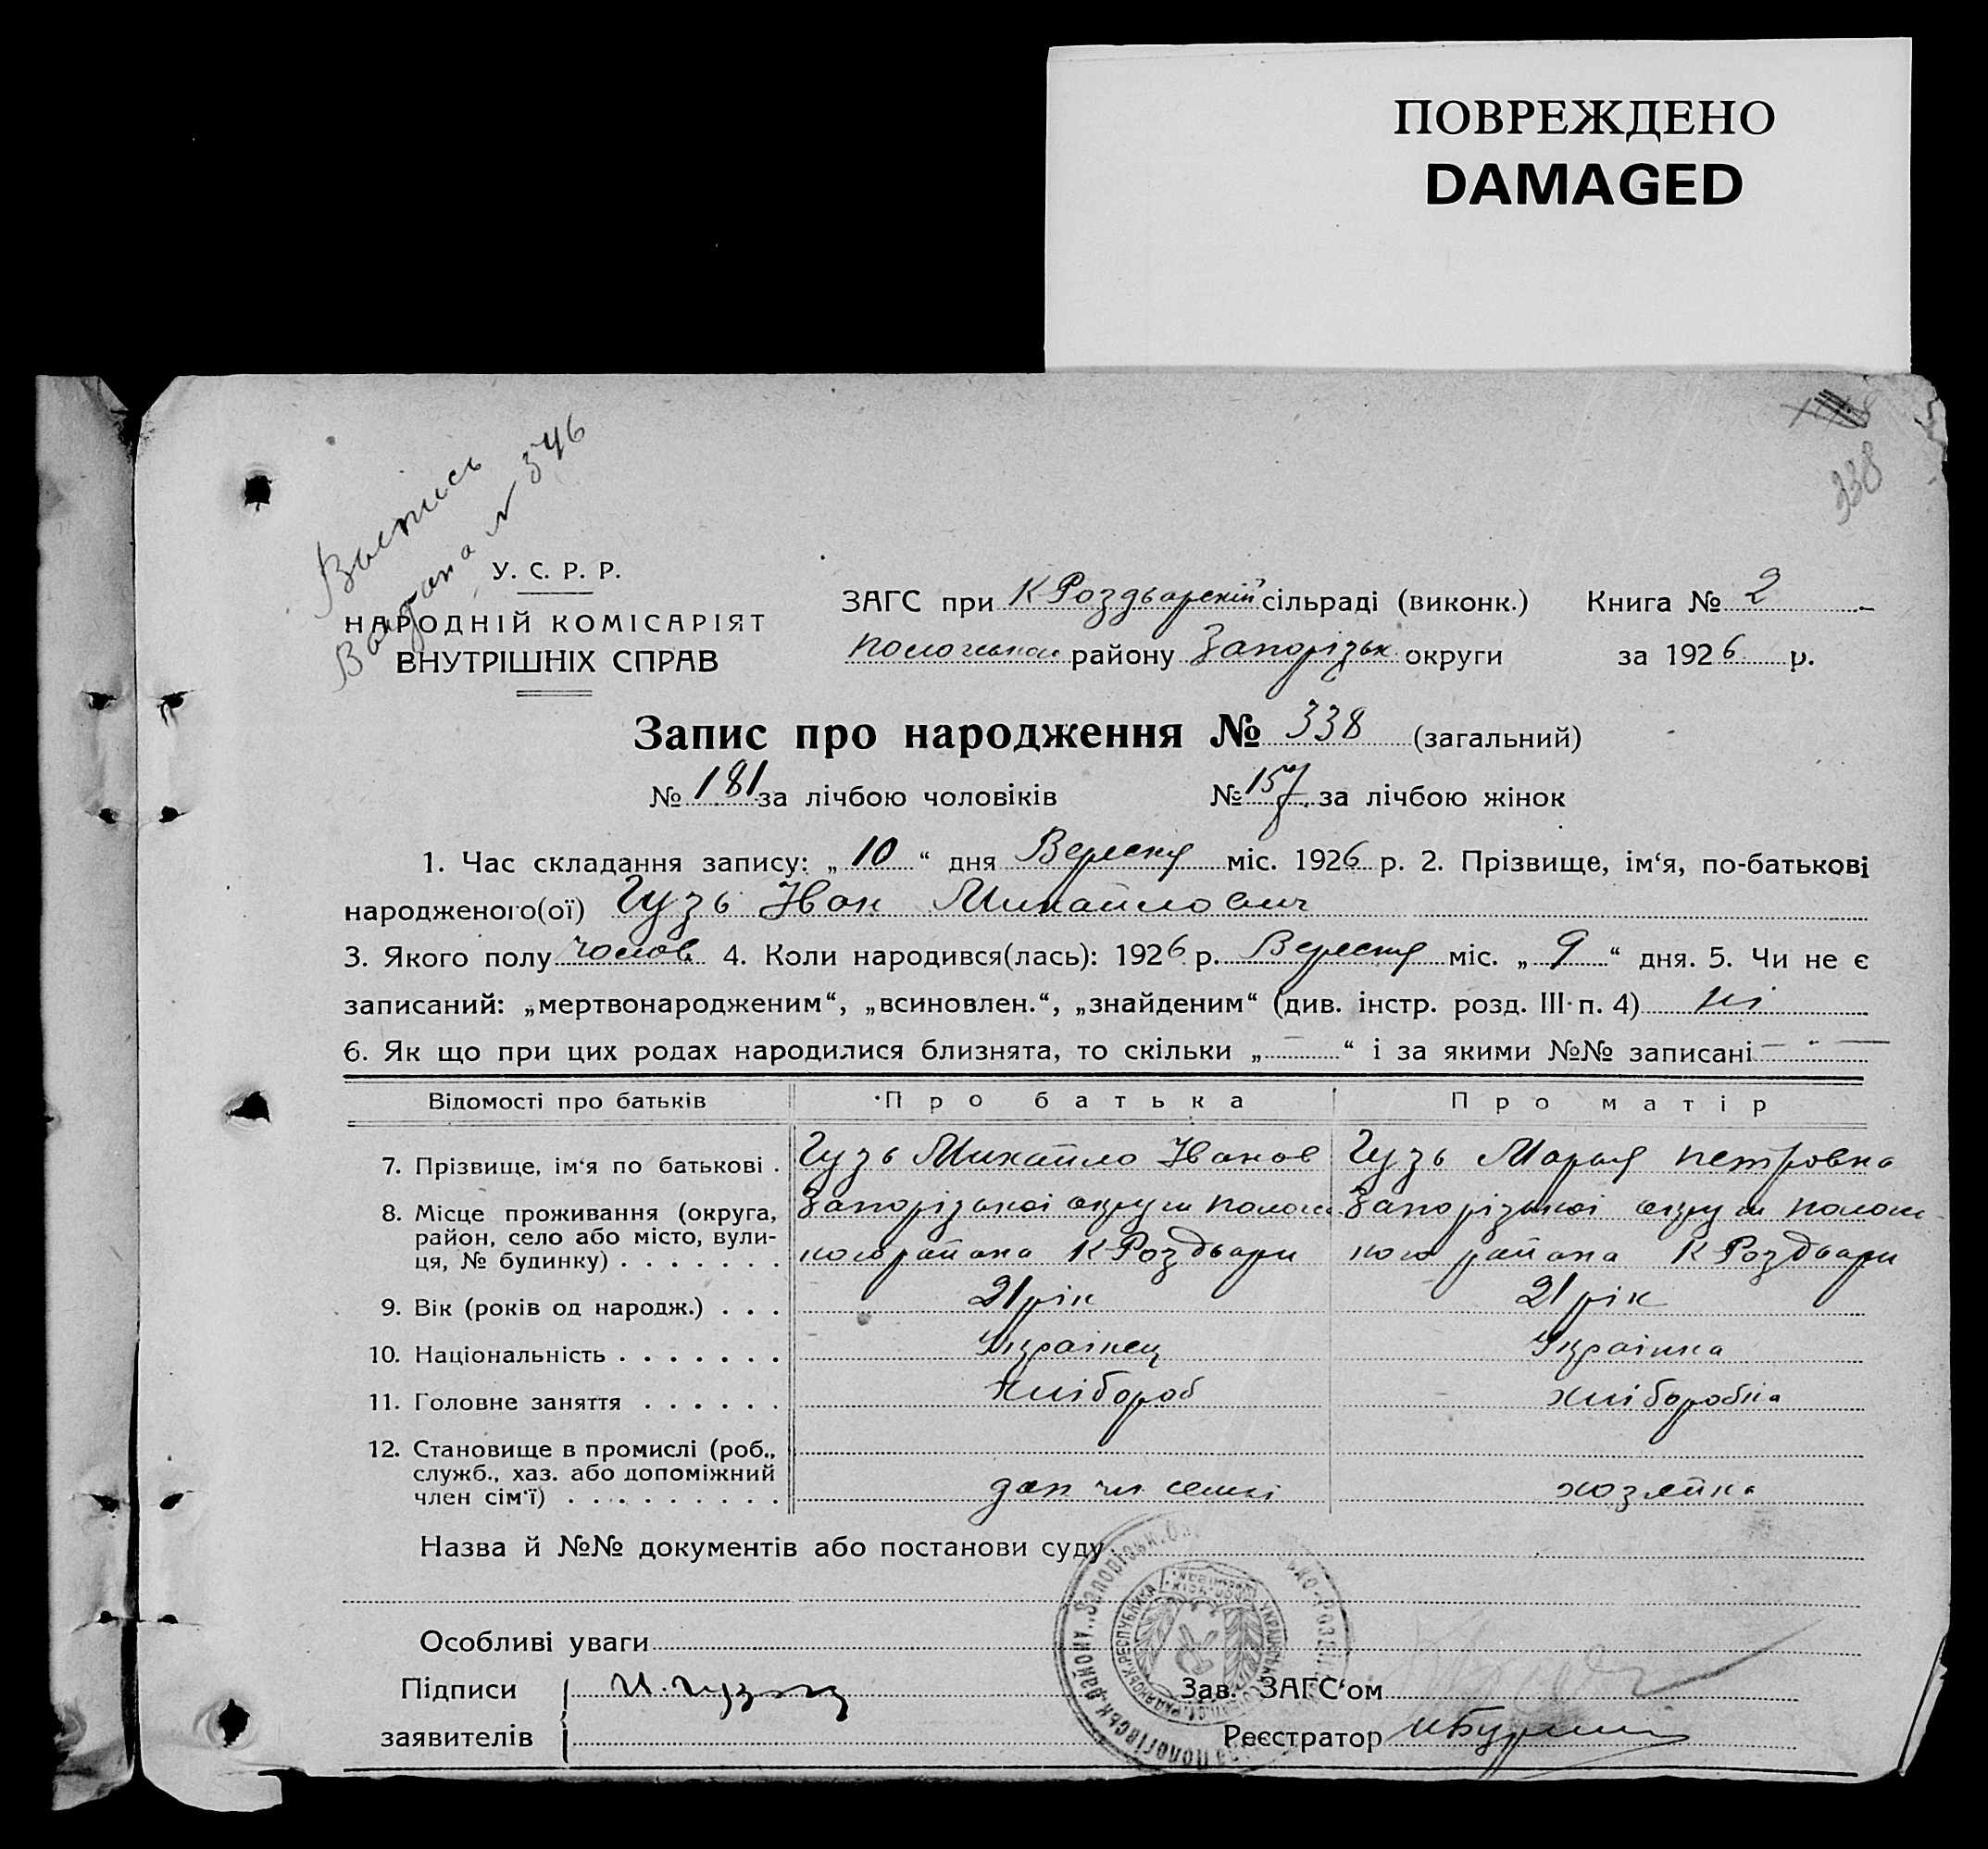 ПОВРЕЖДЕНО
DAMAGED
338
Выпись
Выдана № 546
У. С. Р. Р.
НАРОДНІЙ КОМІСАРІЯТ
ВНУТРІШНІХ СПРАВ
ЗАГС при К Роздорскій сільраді (виконк.) Книга № 2
району Запорізьк округи за 1926 р.
Запис про народження № 338 (загальний)
№ 181 за лічбою чоловіків № 157 за лічбою жінок
1. Час складання запису: „10“ дня Вересня міс. 1926 р. 2. Прізвище, ім‘я, по-батькові
народженого(ої) Гузь Іван Михайлович
3. Якого полу чолов 4. Коли народився(лась): 1926 р. Вересня міс. „9“ дня. 5. Чи не є
записаний: „мертвонародженим“, „всиновлен.“, „знайденим“ (див. інстр. розд. III п. 4) ні
6. Як що при цих родах народилися близнята, то скільки „—“ і за якими №№ записані — " —
Відомості про батьків Про батька Про матір
7. Прізвище, ім‘я по батькові . Гузь Михайло Іванов Гузь Марья Петровна
8. Місце проживання (округа, Запорізької округи Полог Запорізької округи Полог
район, село або місто, вули-
ця, № будинку) . . . . . . . района К Роздори района К Роздори
9. Вік (років од народж.) . . . 21 рік 21 рік
10. Національність . . . . . . . Українец Українка
11. Головне заняття . . . . . . хлібороб хліборобка
12. Становище в промислі (роб.,
служб., хаз. або допоміжний
член сім‘ї) . . . . . . . . . доп чл семьі хозяйка
Назва й №№ документів або постанови суду
Особливі уваги
Підписи
Зав. ЗАГС‘ом
заявителів
Реєстратор